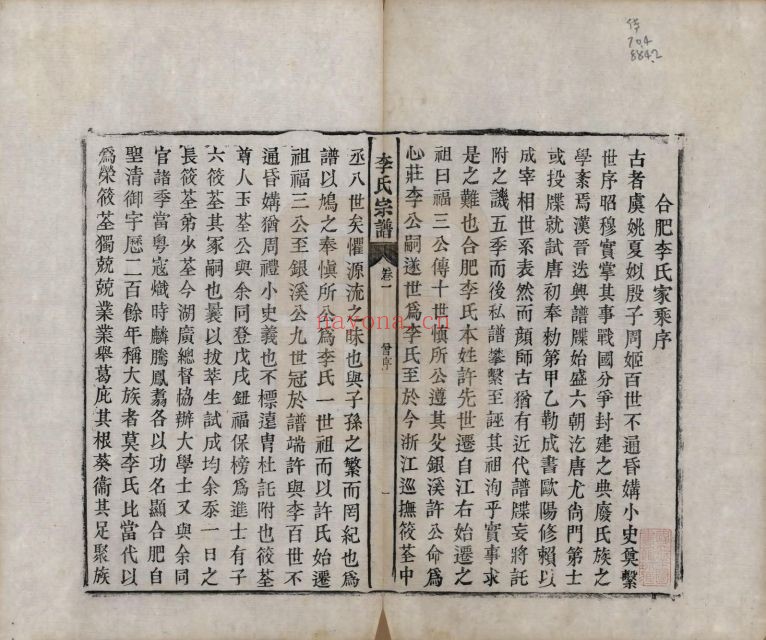 侍
704
8842
合肥李氏家乘序
古者虞姚夏姒殷子周姬百世不通昏媾小史奠繫
世序昭穆實掌其事戰國分爭封建之典廢氏族之
學紊焉漢晉迭興譜牒始盛六朝汔唐尤尙門第士
或投牒就試唐初奉勅第甲乙勒成書歐陽修賴以
成宰相世系表然而顔師古猶有近代譜牒妄將託
附之譏五季而後私譜攀繫至誣其祖洵乎實事求
是之難也合肥李氏本姓許先世遷自江右始遷之
祖曰福三公傳十世愼所公遵其父銀溪許公命爲
心莊李公嗣遂世爲李氏至於今浙江巡撫筱荃中
李氏宗譜
卷一
曾序
一
丞八世矣懼源流之昧也與子孫之繁而罔紀也爲
譜以鳩之奉愼所公爲李氏一世祖而以許氏始遷
祖福三公至銀溪公九世冠於譜端許與李百世不
通昏媾猶周禮小史義也不標遠胄杜託附也筱荃
尊人玉荃公與余同登戊戌鈕福保榜爲進士有子
六筱荃其冢嗣也曩以拔萃生試成均余忝一日之
長筱荃弟少荃今湖廣總督協辦大學士又與余同
官諸季當粵寇熾時麟騰鳳翥各以功名顯合肥自
聖清御宇歷二百餘年稱大族者莫李氏比當代以
爲榮筱荃獨兢兢業業舉葛庇其根葵衞其足聚族
nayona.cn